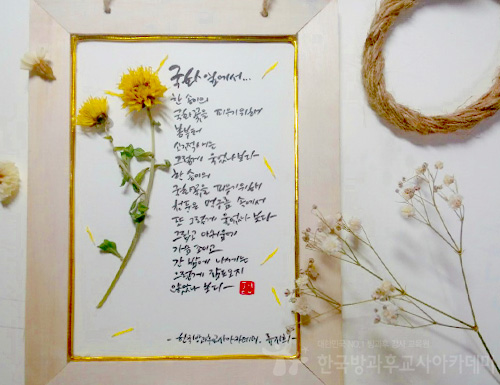 국화 옆에서...
한 송이의
국화꽃을 피우기위해
봄부터
소쩍새는
그렇게 울었나보다
한 송이의
국화꽃을 피우기위해
천둥은 먹구름 속에서
또 그렇게 울었나 보다
그립고 아쉬움에
가슴 조이고
간 밤에 나에게는
그렇게 잠도오지
않았나 보다
- 한국방과후교사아카데미.
한국방과후교사아카데미